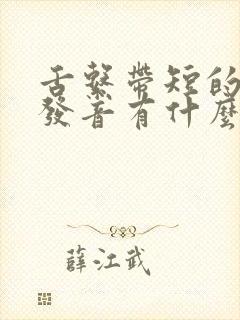 舌繫帶短的
發音有什麼
薛江武